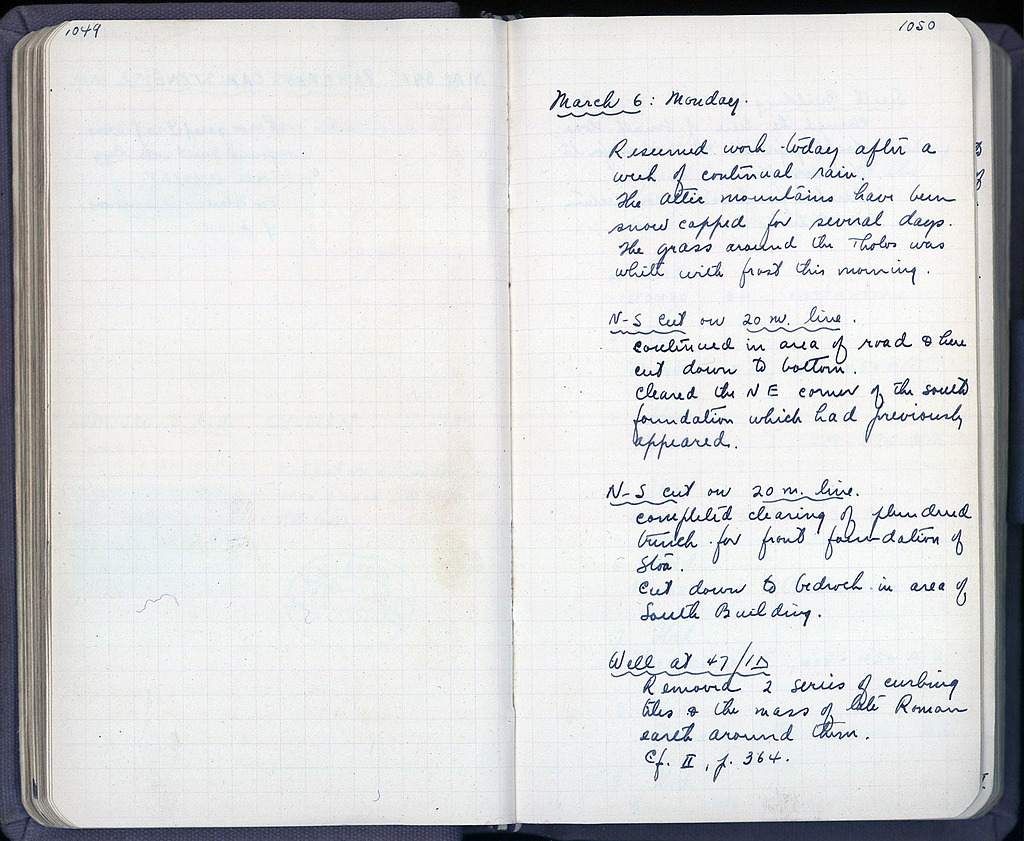 1049
1050
March 6: Monday.
Resumed work today after a
week of continual rain.
The Attic mountains have been
snow capped for several days.
The grass around the Tholos was
white with frost this morning.
N-S cut on 20 m. line.
continued in area of road & here
cut down to bottom.
cleared the NE corner of the south
foundation which had previously
appeared.
N-S cut on 20 m. line.
completed clearing of plundered
trench for front foundation of
Stoa.
Cut down to bedrock in area of
South Building.
Well at 47/ΙΔ
Removed 2 series of curbing
tiles & the mass of late Roman
earth around them.
Cf. II, p. 364.